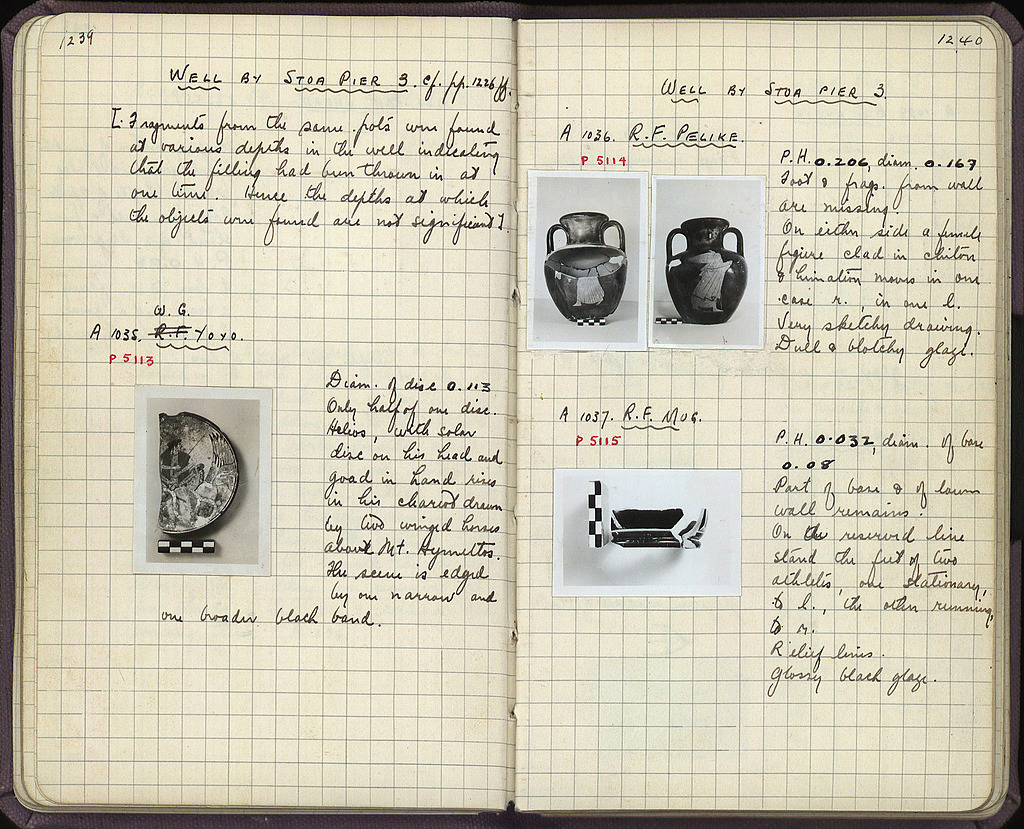 1239
WELL BY STOA PIER 3. cf. pp. 1226 ff.
[. Fragments from the same pots were found
at various depths in the well indicating
that the filling had been thrown in at
one time. Hence the depths at which
the objects were found are not significant]
W. G.
A 1035. R.F. YOYO.
P 5113
Diam. of disc 0.113
Only half of one disc.
Helios, with solar
disc on his head and
goad in hand rises
in his chariot drawn
by two winged horses
about Mt. Hymettos.
The scene is edged
by one narrow and
one broader black band.
1240
WELL BY STOA PIER 3.
A 1036. R.F. PELIKE.
P 5114
P.H. 0.206, diam. 0.167
Foot & frags. from wall
are missing.
On either side a female
figure clad in chiton
& himation moves in one
case r., in one l.
Very sketchy drawing.
Dull & blotchy glaze.
A 1037. R.F. MUG.
P 5115
P.H. 0.032, diam. of base
0.08
Part of base & of lower
wall remains.
On the reserved line
stand the feet of two
athletes, one stationary,
to l., the other running,
to r.
Relief lines.
Glossy black glaze.